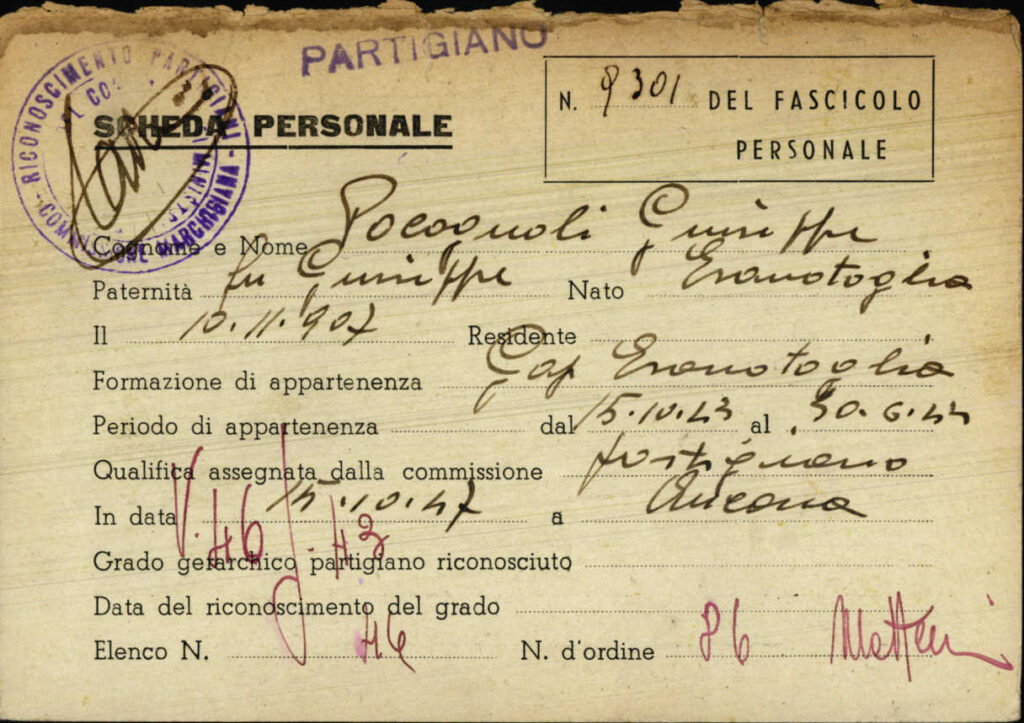 PARTIGIANO
RICONOSCIMENTO PARTIGIANI - COMM REG. MARCHIGIANA
SCHEDA PERSONALE
N. 9301 DEL FASCICOLO
PERSONALE
Cognome e Nome Pocognoli Giuseppe
Paternità fu Giuseppe Nato Esanatoglia
Il 10.11.907 Residente
Formazione di appartenenza Gap Esanatoglia
Periodo di appartenenza dal 15.10.43 al 30.6.44
Qualifica assegnata dalla commissione partigiano
In data 15.10.47 a Ancona
V.46 43
Grado gerarchico partigiano riconosciuto
Data del riconoscimento del grado
Elenco N. 46 N. d'ordine 86